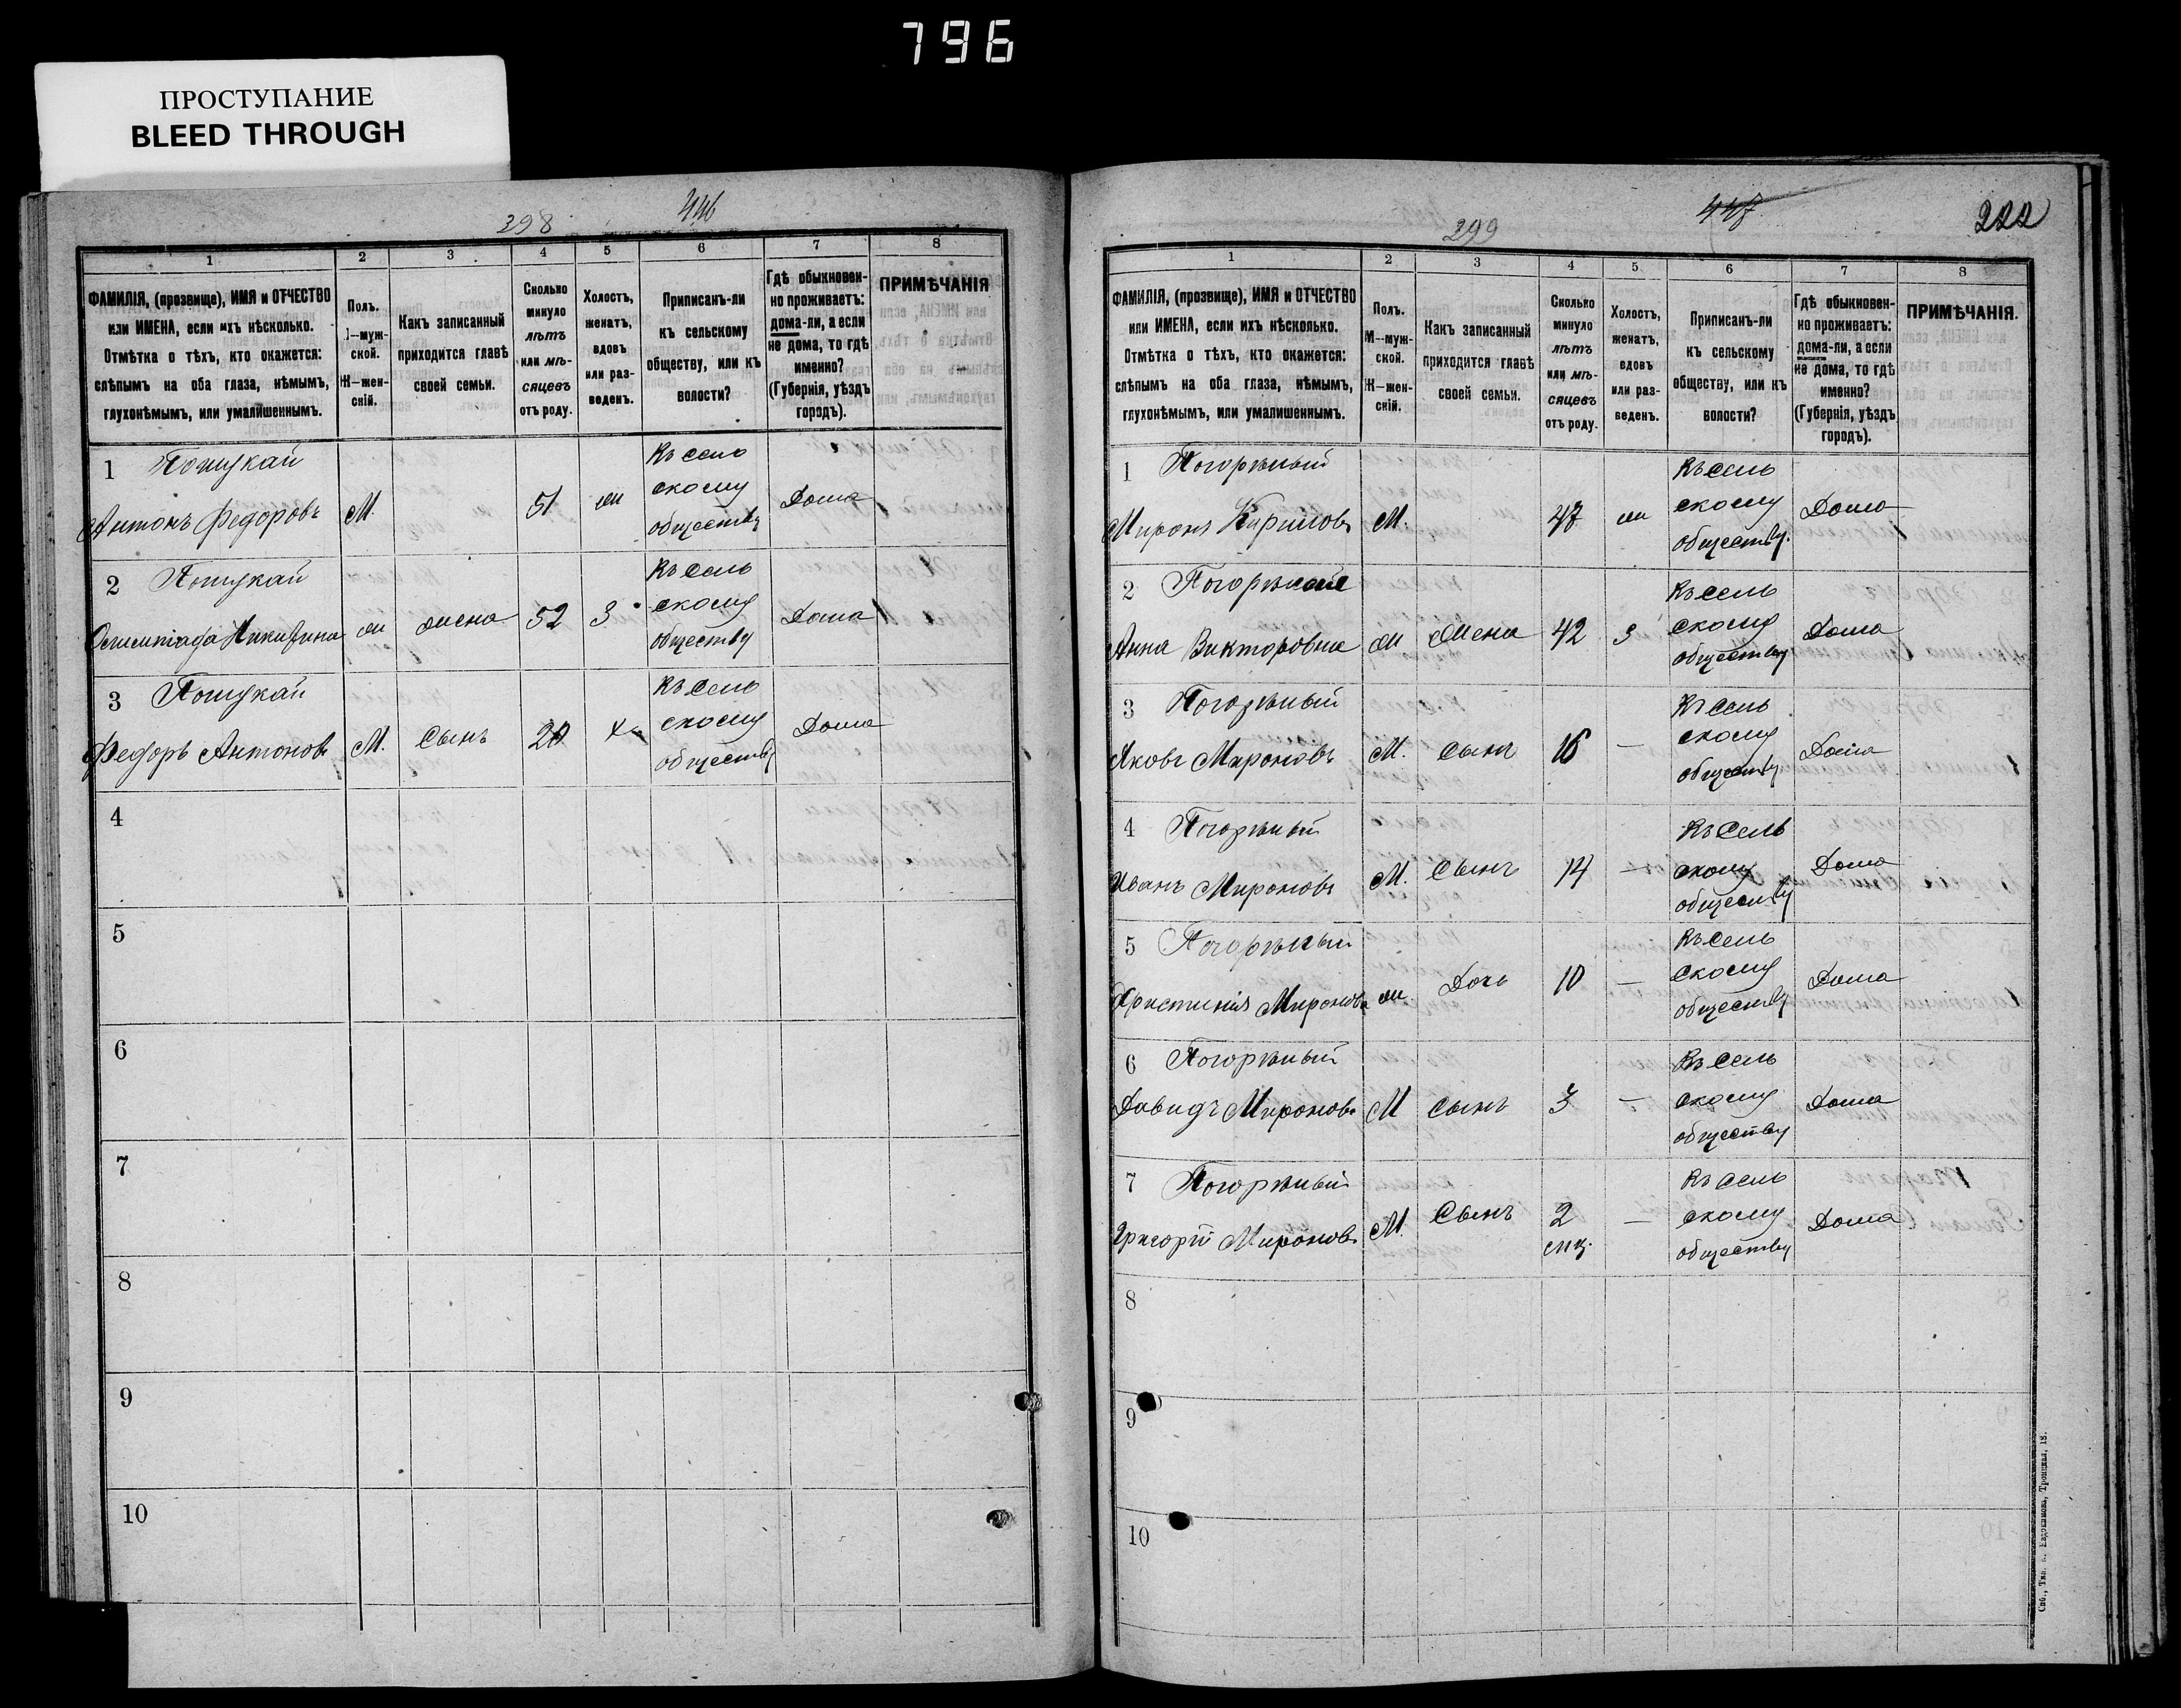 796
ПРОСТУПАНИЕ
BLEED THROUGH
298
446
1 2 3 4 5 6 7 8
ФАМИЛІЯ, (прозвище), ИМЯ и ОТЧЕСТВО или ИМЕНА, если ихъ нѣсколько. Отмѣтка о тѣхъ, кто окажется: слѣпымъ на оба глаза, нѣмымъ, глухонѣмымъ, или умалишеннымъ.
Полъ. М—муж-ской. Ж—жен-скій.
Какъ записанный приходится главѣ своей семьи.
Сколько минуло лѣтъ или мѣ-сяцевъ отъ роду.
Холостъ, женатъ, вдовъ или раз-веденъ.
Приписанъ-ли къ сельскому обществу, или къ волости?
Гдѣ обыкновен-но проживаетъ: дома-ли, а если не дома, то гдѣ именно? (Губернія, уѣздъ городъ).
ПРИМѢЧАНІЯ
1
Антонъ Федоровъ М. 51 ж Къ сель скому обществу Дома
2
Никитина ж жена 52 З Къ сель скому обществу Дома
3
Федоръ Антоновъ М. Сынъ 20 Х Къ сель скому обществу Дома
4
5
6
7
8
9
10
299
447
222
1 2 3 4 5 6 7 8
ФАМИЛІЯ, (прозвище), ИМЯ и ОТЧЕСТВО или ИМЕНА, если ихъ нѣсколько. Отмѣтка о тѣхъ, кто окажется: слѣпымъ на оба глаза, нѣмымъ, глухонѣмымъ, или умалишеннымъ.
Полъ. М—муж-ской. Ж—жен-скій.
Какъ записанный приходится главѣ своей семьи.
Сколько минуло лѣтъ или мѣ-сяцевъ отъ роду.
Холостъ, женатъ, вдовъ или раз-веденъ.
Приписанъ-ли къ сельскому обществу, или къ волости?
Гдѣ обыкновен-но проживаетъ: дома-ли, а если не дома, то гдѣ именно? (Губернія, уѣздъ городъ).
ПРИМѢЧАНІЯ.
1 Погорѣлый
Миронъ Кириловъ М. 47 ж Къ сель скому обществу. Дома
2 Погорѣлая
Анна Викторовна ж Жена 42 З Къ сель скому обществу Дома
3 Погорѣлый
Яковъ Мироновъ М. Сынъ 16 — Къ сель скому обществу Дома
4 Погорѣлый
Иванъ Мироновъ М. Сынъ 14 — Къ сель скому обществу Дома
5 Погорѣлый
Христинія Миронова ж Дочь 10 — Къ сель скому обществу Дома
6 Погорѣлый
Давидъ Мироновъ М Сынъ 3 — Къ сель скому обществу Дома
7 Погорѣлый
Григорій Мироновъ М. Сынъ 2 мц. — Къ сель скому обществу Дома
8
9
10
Спб., Тип. п. Евдокимова, Троицкая, 18.